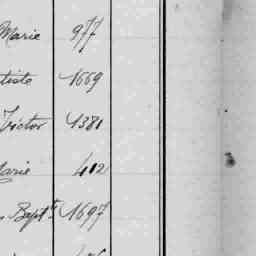 Marie 977
tiste 1669
Victor 1381
Marie 412
Baptte 1697